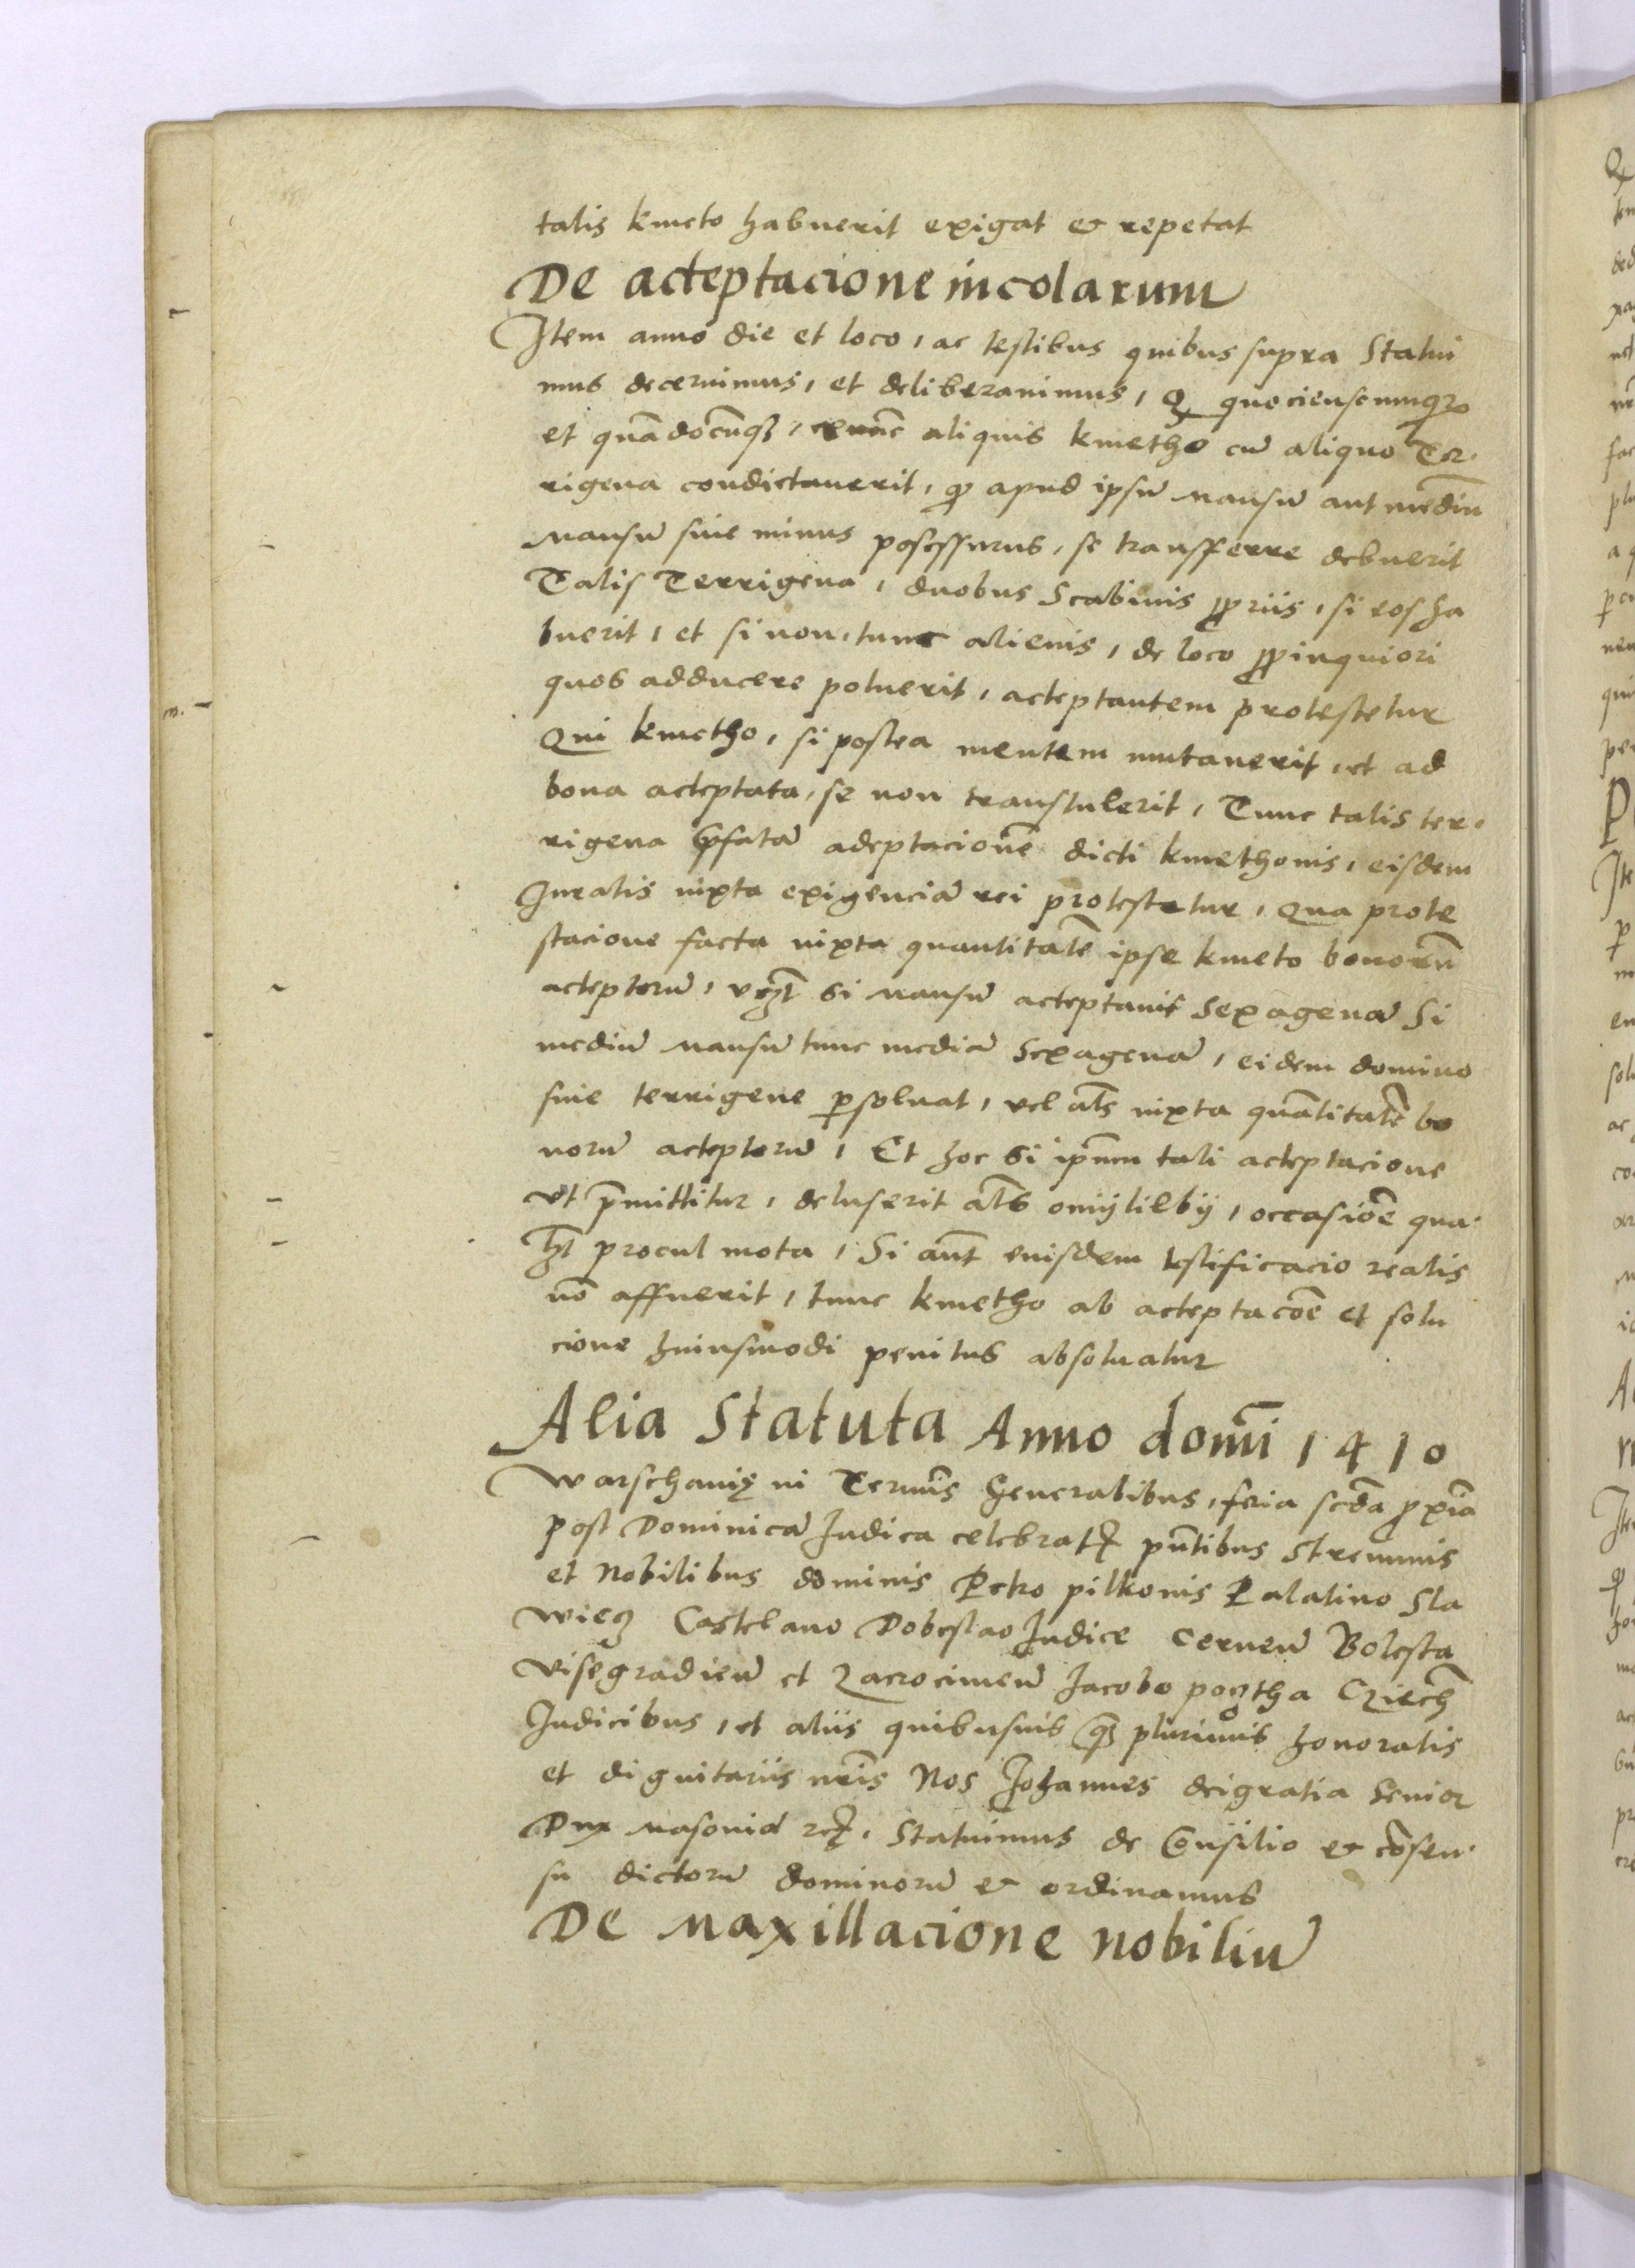 talis kmeto habuerit exigat & repetat
De acteptacione incolarum
Item anno die et loco, ac testibus quibus supra Statui
mus decernimus, et deliberauimus, Q quociensecunqz
et quãdocũqz, aliquis kmetho cũ aliquo Ter.
rigena condictauerit, ꝙ apud ipsũ Mansũ aut mediũ
Mansũ siue minus posessurus, se transferre debuerit
Talis Terrigena, duobus Scabinis ꝓpriis, si eos ha
buerit, et si non, tunc alienis, de loco ꝓpinquiori
quos adducere potuerit, acteptantem protestetur
Qui kmetho, si postea mentem mutauerit, et ad
bona acteptata, se non transtulerit, Tunc talis ter.
rigena p̃fatã adeptacionẽ dicti kmethonis, eisdem
Iuratis iuxta exigenciã rei protestetur, Qua prote
stacione facta iuxta quantitatẽ ipse kmeto bonorũ
acteptorũ, vꝫt si Mansũ acteptauit Sexagenã Si
mediũ Mansũ tunc mediã Sexagenã, eidem domino
siue terrigene ꝑsoluat, vel als̃ iuxta quãtitatẽ bo
norũ acteptorũ, Et hoc si ip̃um tali acteptacione
vt p̃mittitur, deluserit als̃ omijlilbij, occasiõe qua.
lꝫt procul mota, Si aut̃ euisdem testificacio realis
nõ affuerit, tunc kmetho ab acteptacõe et solu
cione huiusmodi penitus absoluatur
Alia Statuta Anno domĩ 1410
Warschauię in Termĩs Generalibus, feria scđa ꝓxĩa
post Dominicã Iudica celebratꝭ pñtibus Strennuis
et Nobilibus dominis Petro pilkonis Palatino Sla
wiecz Castelano Dobeslao Iudice Cerneñ Bolesta
Visegradieñ et Zacrocimeñ Iacobo pogtha Cziech̃
Iudicibus, et aliis quibusuis qꝫ plurimis honoratis
et dignitariis nr̃is Nos Johannes dei gratia Senior
Dux Masouiæ rcꝭ, Statuimus de Consilio & cõsen.
su dictorũ dominorũ & ordinamus
De Maxillacione nobiliũ